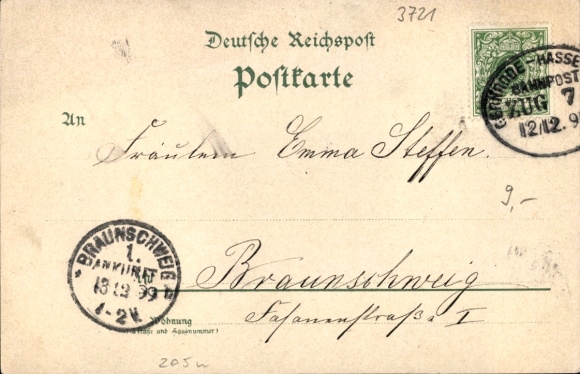 3721
Deutsche Reichspost
Postkarte
GERNRODE-HASSE
BAHNPOST
ZUG 7
12/12.9
An
Fräulein Emma Steffen.
9,-
BRAUNSCHWEIG
1.
ANKUNFT
13.12.99
1-2V.
Braunschweig
Wohnung
(Straße und Hausnummer)
Fasanenstraße I
205